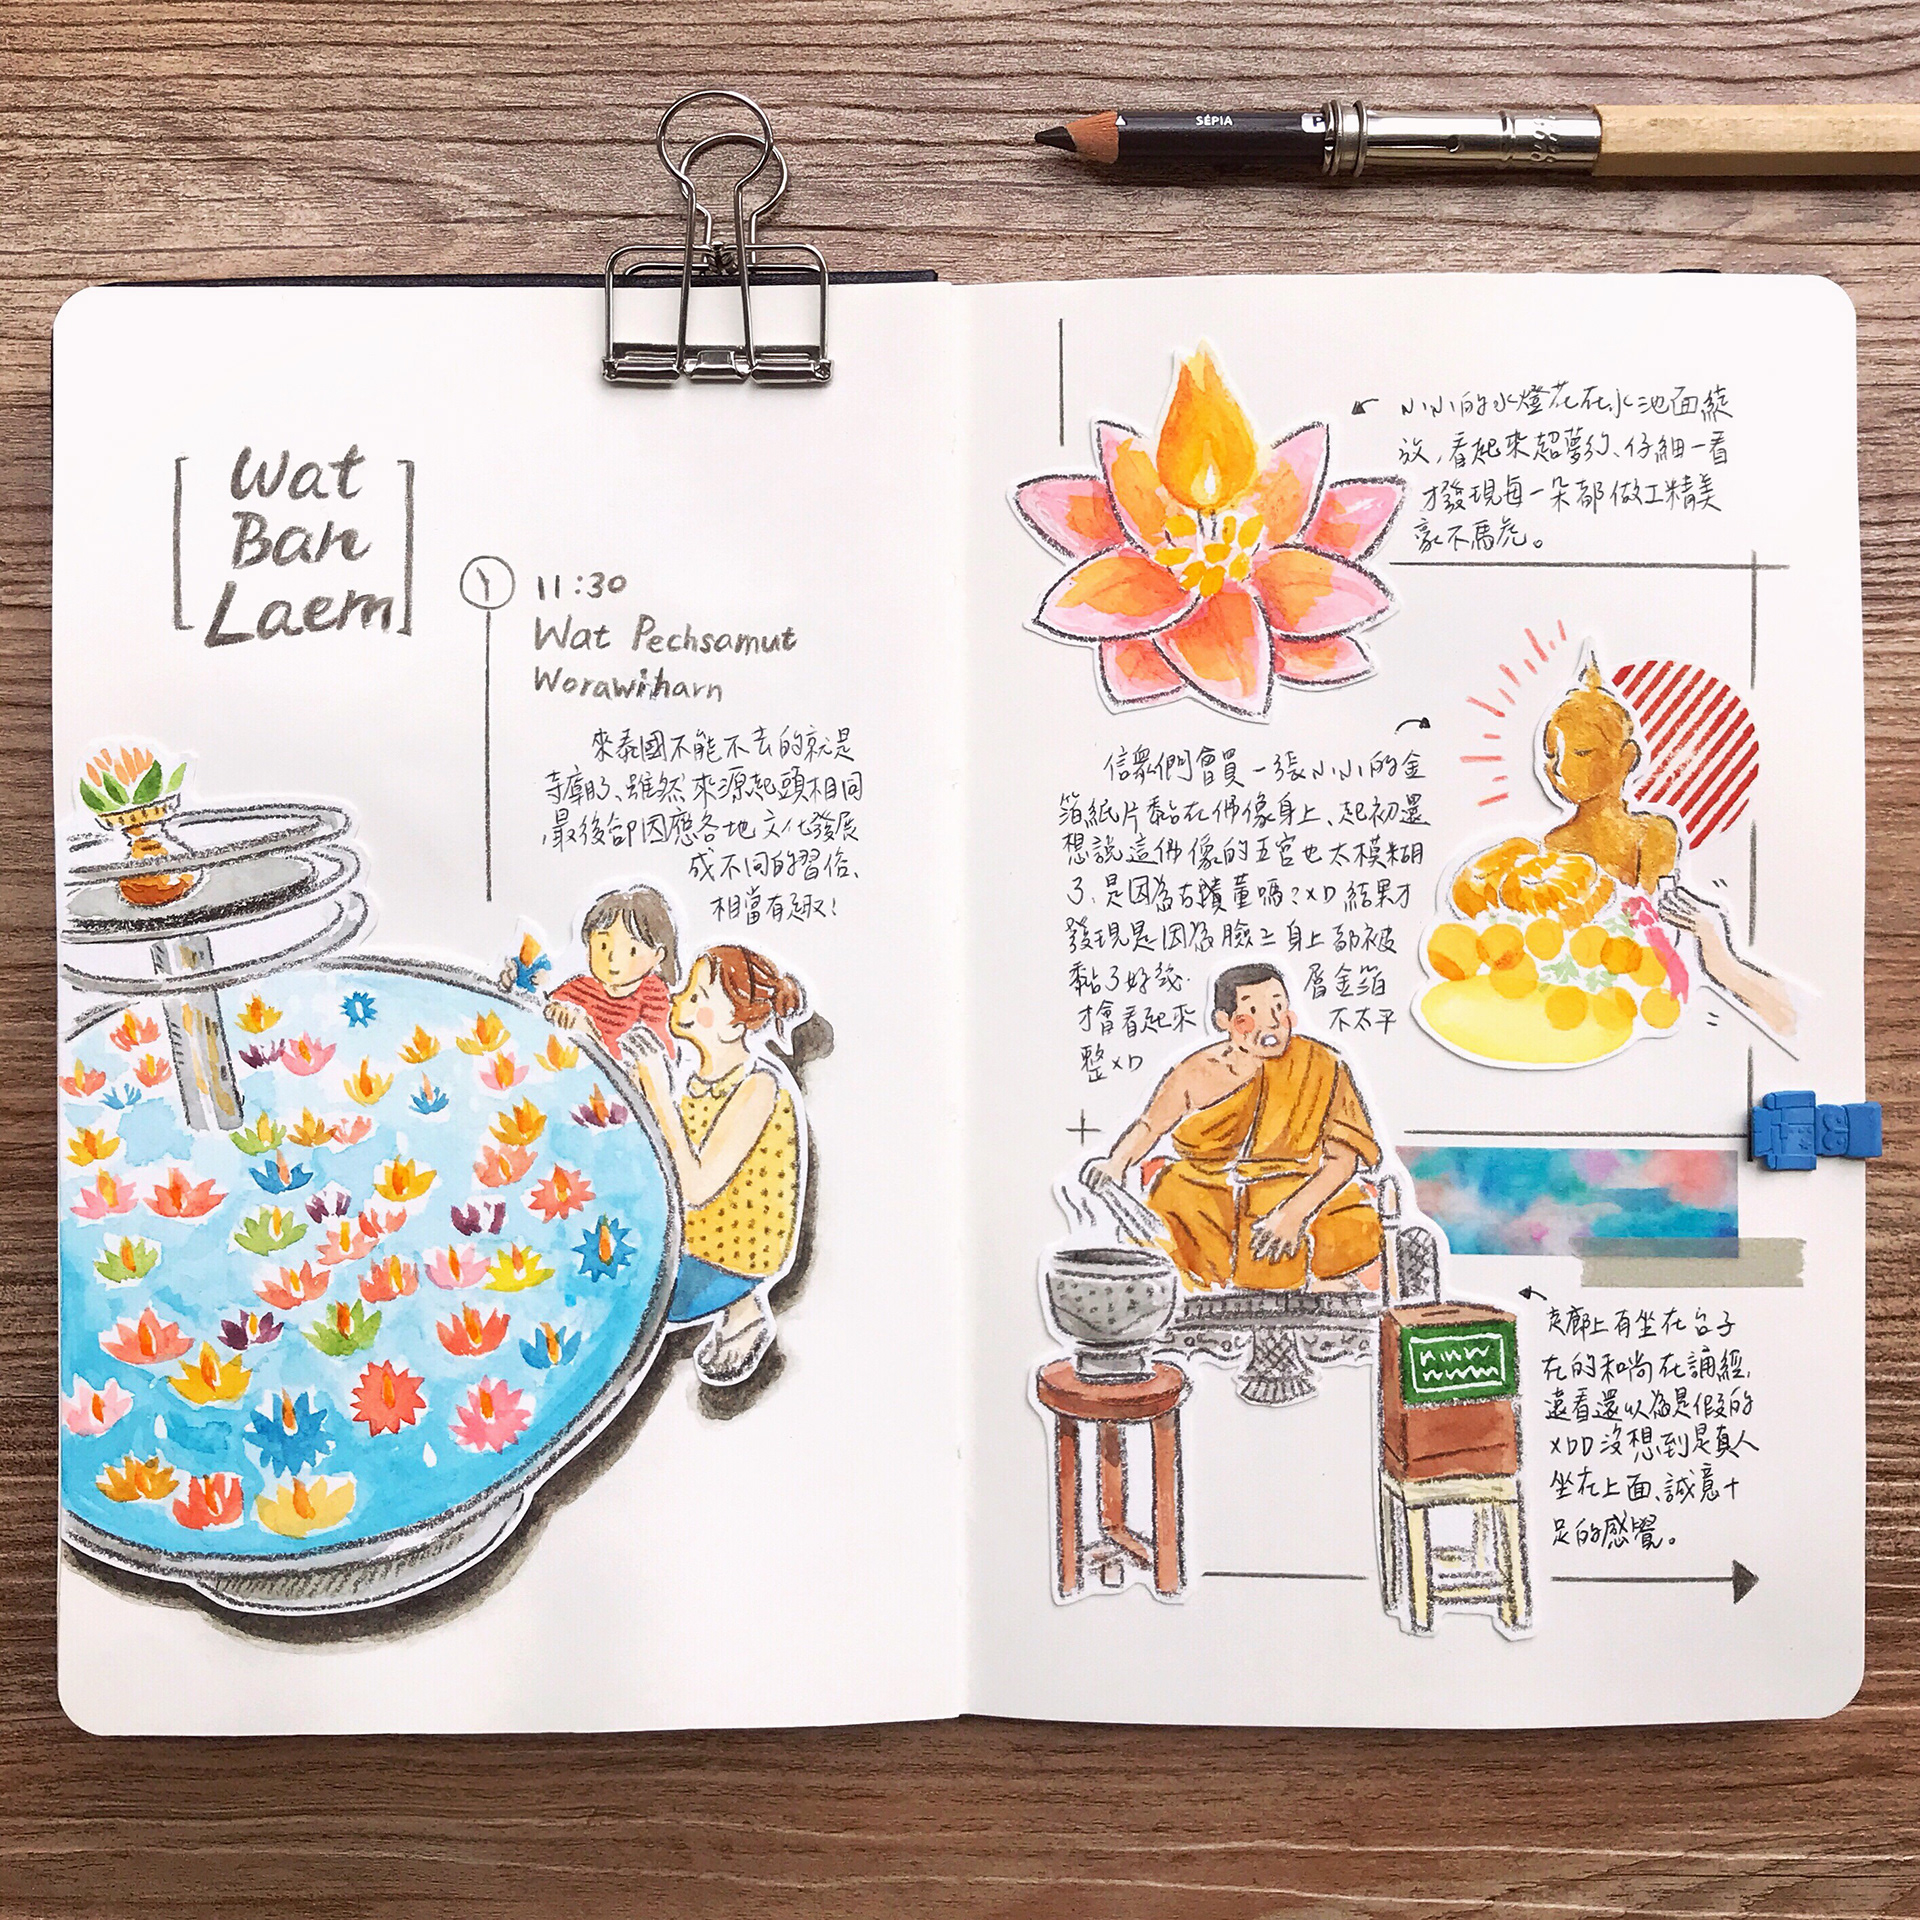 SÉPIA
P
Wat
Ban
Laem
1
11:30
Wat Pechsamut
Worawiharn
來泰國不能不去的就是
寺廟了、雖然來源起頭相同
,最後卻因應各地文化發展
成不同的習俗、
相當有趣!
小小的水燈花在水池面綻
放,看起來超夢幻、仔細一看
才發現每一朵都做工精美
毫不馬虎。
信眾們會買一張小小的金
箔紙片黏在佛像身上、起初還
想說這佛像的五官也太模糊
了、是因為古蹟董嗎?XD 結果才
發現是因為臉上身上都被
黏了好幾層金箔
才會看起來不太平
整XD
走廊上有坐在台子
在的和尚在誦經,
遠看還以為是假的
XDD 沒想到是真人
坐在上面、誠意十
足的感覺。